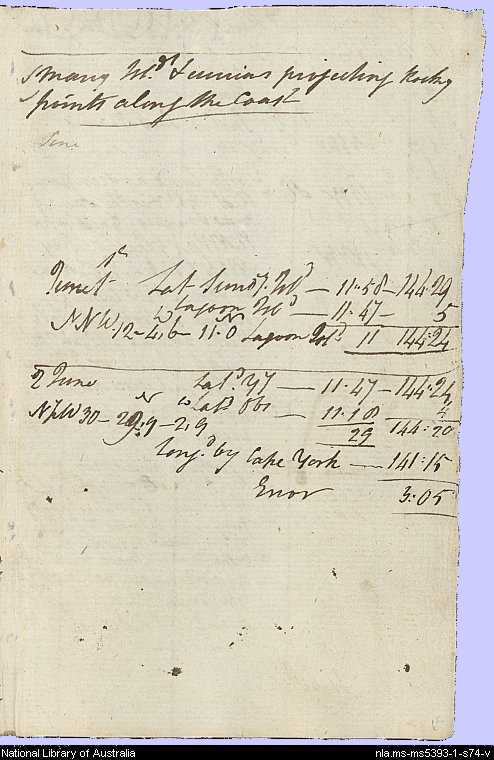 many Isl.ds & various projecting Rocky
points along the Coast
June
June 1st Lat Sund.y Isl.d — 11.58 — 144.29
Lagoon Isl.d — 11.47 — 5
NNW. 12 — 4,6 W — 11.0 N Lagoon Isl.d 11 144.24
2 June Lat.d Y.y — 11.47 — 144.24
NbW 30 — 29,9 N — 2,9 W Lat.d Obs — 11.18 4
29 144:20
Long.d by Cape York — 141:15
Error 3:05
National Library of Australia nla.ms-ms5393-1-s74-v